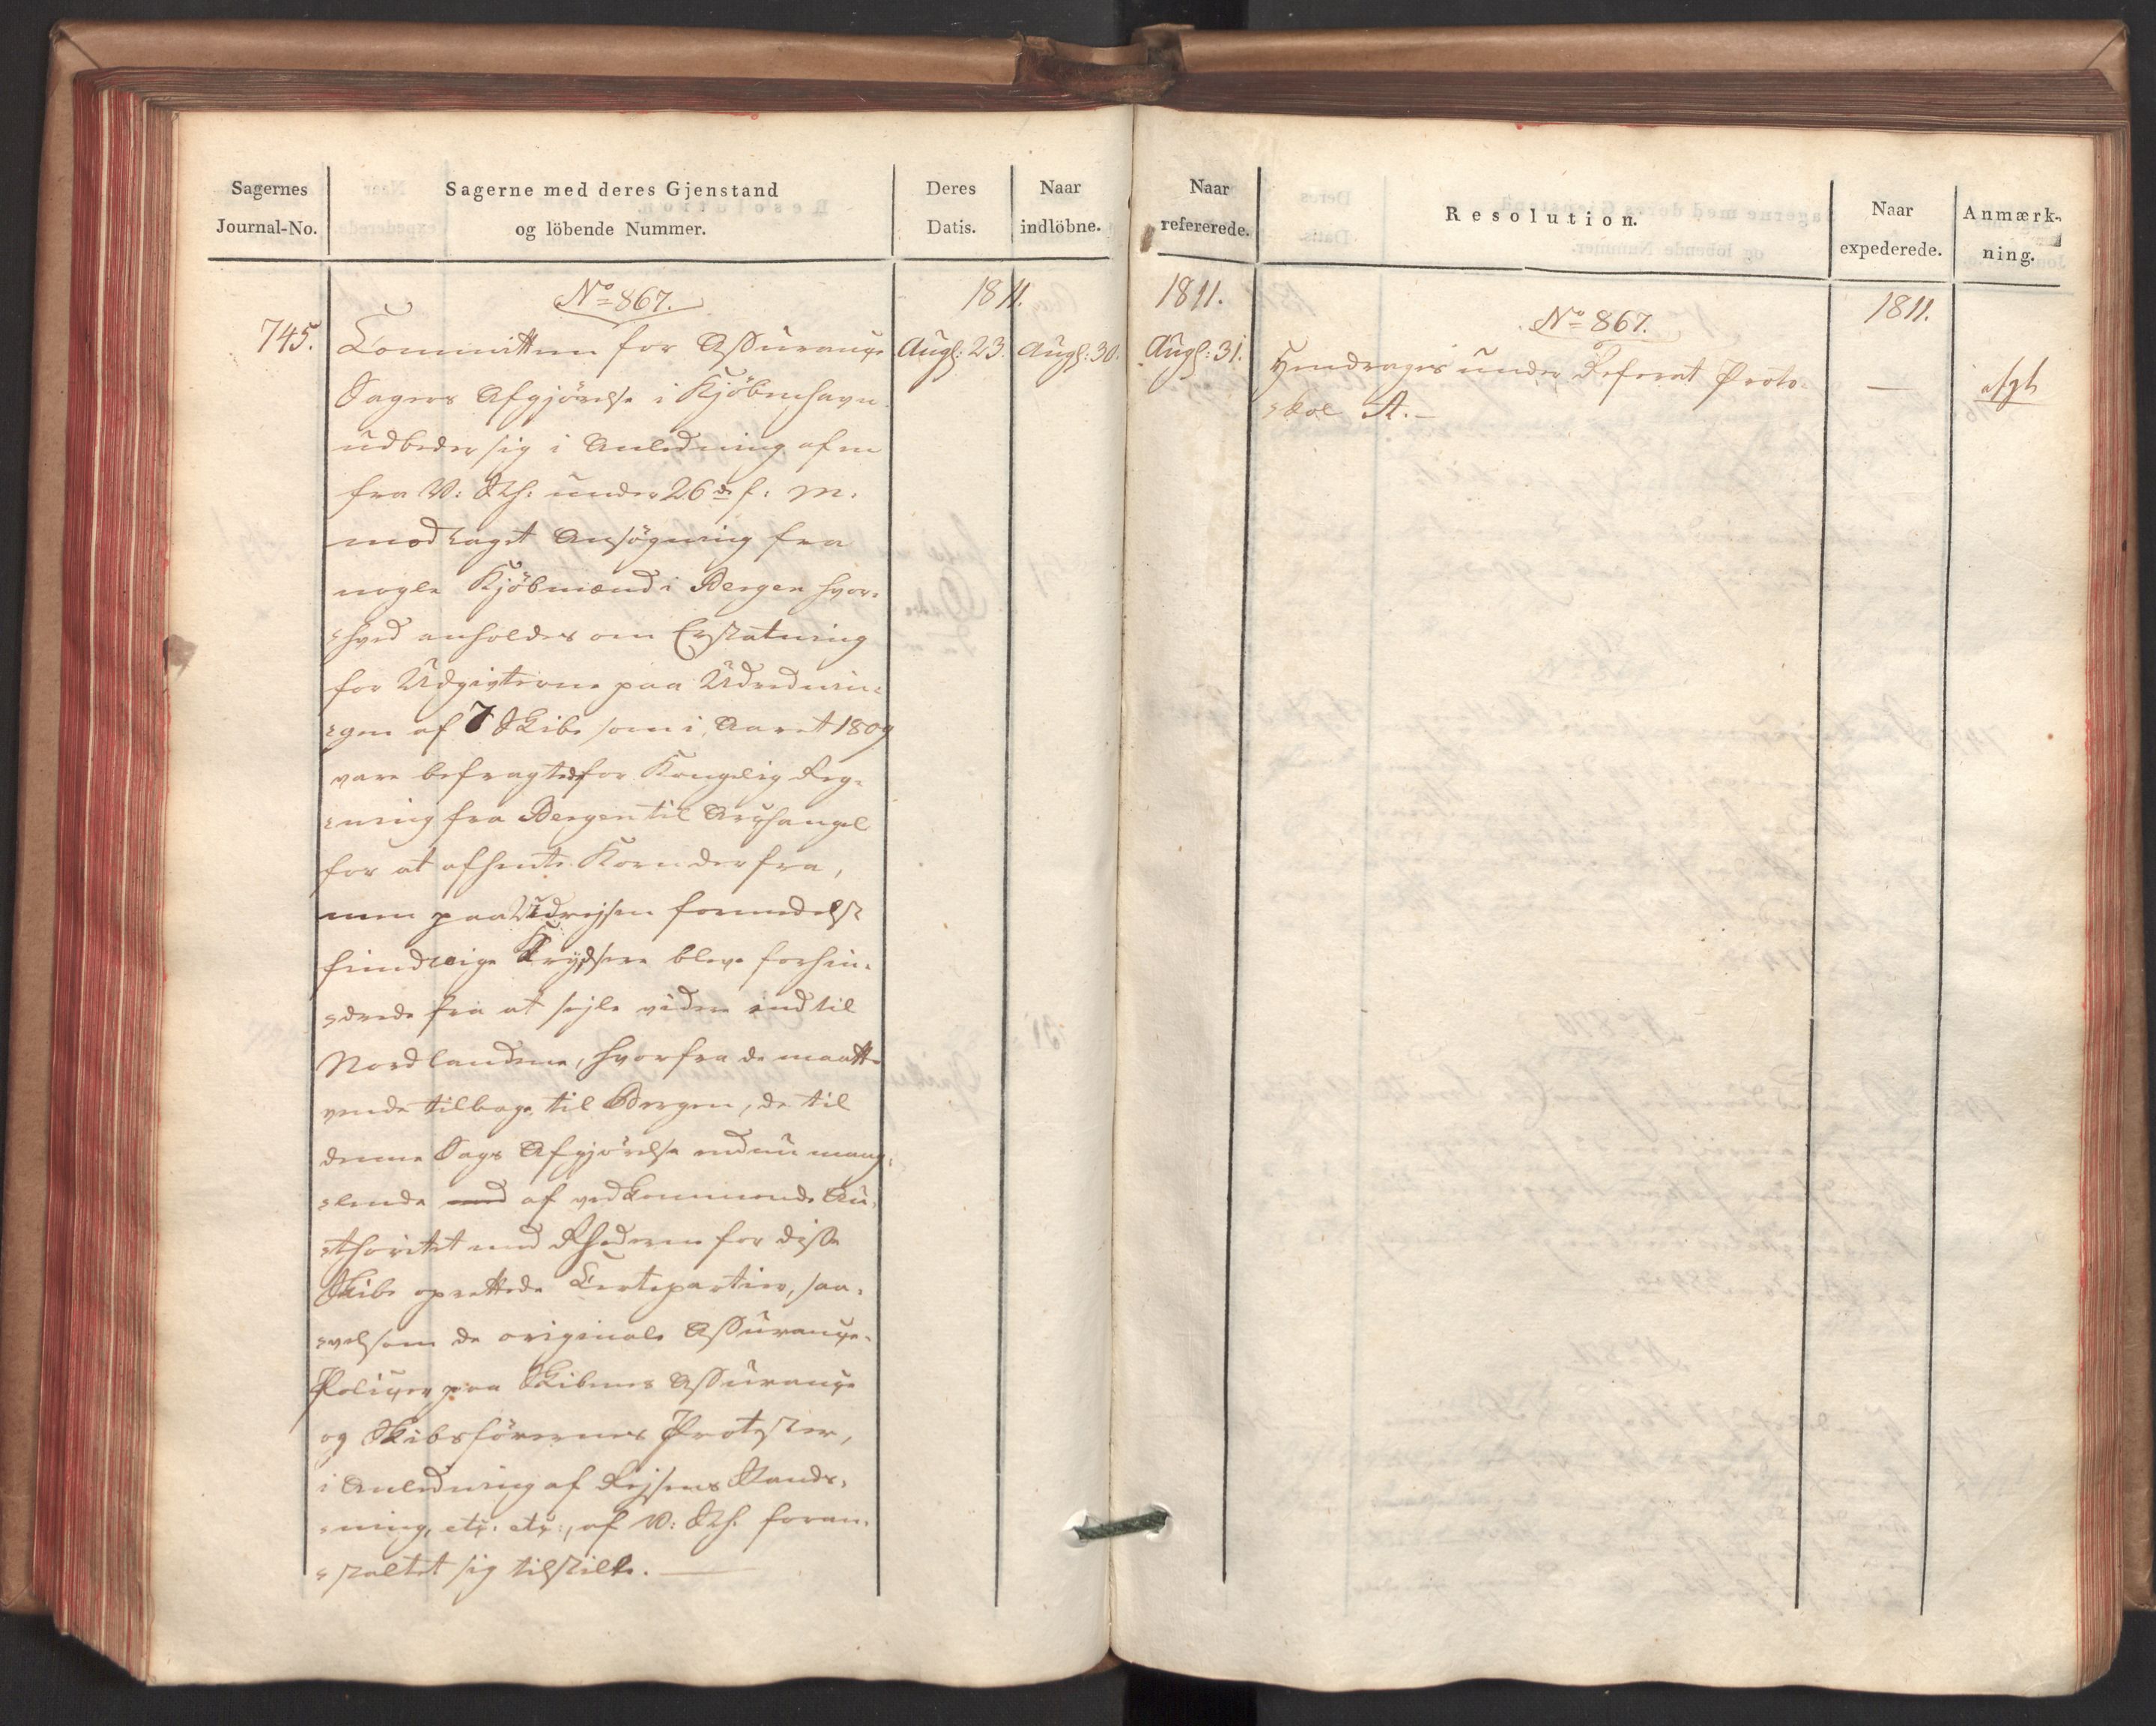 Sagernes
Journal-No.
Sagerne med deres Gjenstand
og löbende Nummer.
Deres
Datis.
Naar
indlöbne.
No 867.
1811.
745.
Committeen for Assurance
Augs: 23.
Augs: 30.
Sagers Afgjörelse i Kjöbenhavn
udbeder sig i Anledning af en
fra V: St: under 26de f: M:
modtaget Ansögning fra
nogle Kjöbmænd i Bergen hvor-
hved anholdes om Erstatning
for Udgivterne paa Udrednin-
gen af 7 Skibe som i Aaret 1809
vare befragted for Kongelig Reg-
ning fra Bergen til Archangel
for at afhente Korn derfra,
men paa Udrejsen formedelst
fiendtlige Krydsere bleve forhin-
drede fra at sejle videre end til
Nordlandene, hvorfra de maatte
vende tilbage til Bergen, de til
denne Sags Afgjörelse endnu mang-
lende af vedkommende Au-
thoritet med Rhederne for disse
Skibe oprettede Certepartier, saa-
velsom de originale Assurance-
Policer paa Skibenes Assurance
og Skibsförernes Protester,
i Anledning af Rejsens Stands-
ning, etc: etc:, af V: St: foran-
staltet sig tilstillet.
Naar
refererede.
Resolution.
Naar
expederede.
Anmærk-
ning.
1811.
No 867.
1811.
Augs: 31.
Hendrages under Referat Proto-
kol A.
—
afgt